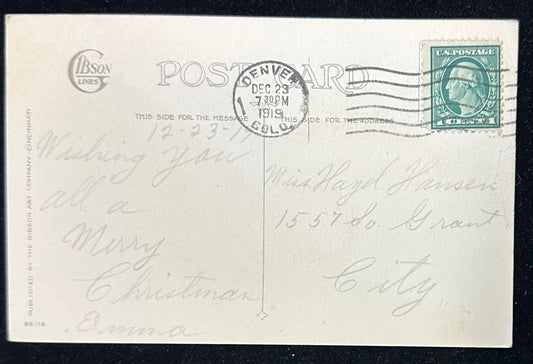 GIBSON
LINES
POST CARD
DENVER
DEC 23
7 30 PM
1919
COLO.
1
U.S. POSTAGE
1 CENT 1
THIS SIDE FOR THE MESSAGE
THIS SIDE FOR THE ADDRESS
12-23-19
Wishing you
all a
Merry
Christmas
Emma
Miss Hazel Hansen
1557 So. Grant
City
PUBLISHED BY THE GIBSON ART COMPANY CINCINNATI